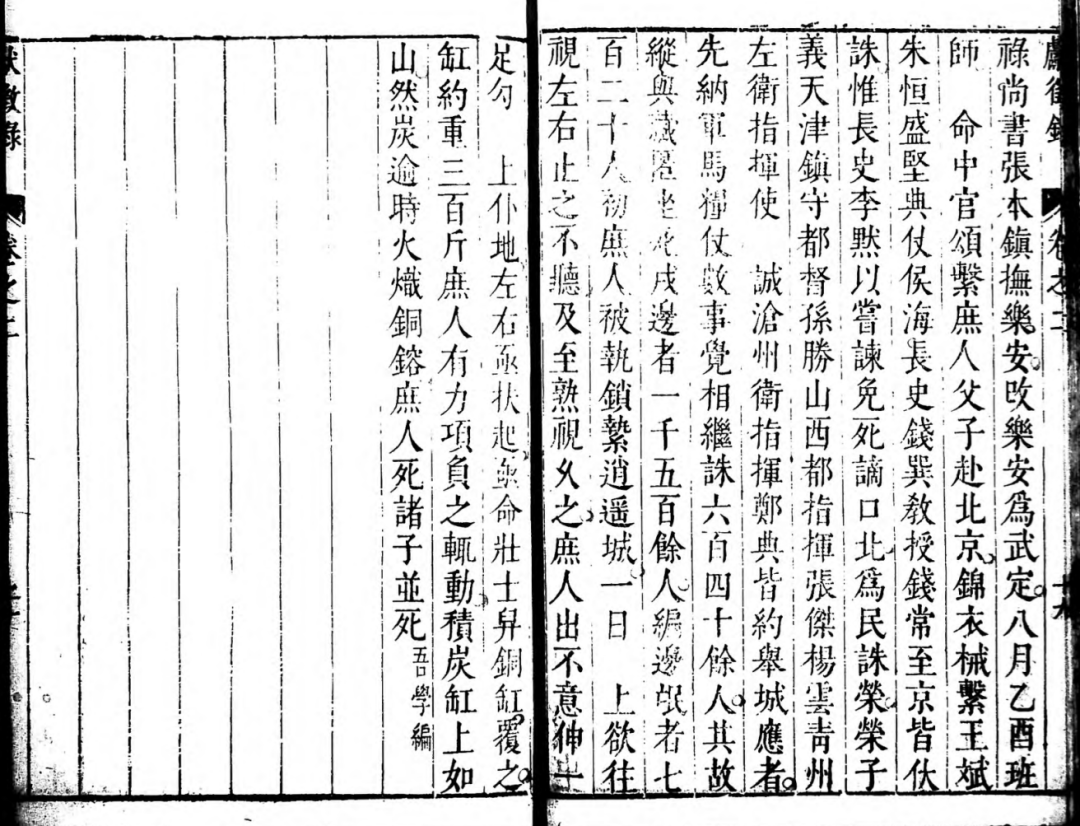 獻徵錄
卷之二
十九
祿尚書張本鎮撫樂安改樂安爲武定八月乙酉班
師　命中官頌繫庶人父子赴北京錦衣械繫王斌
朱恒盛堅典仗侯海長史錢巽教授錢常至京皆伏
誅惟長史李默以嘗諫免死謫口北爲民誅榮榮子
義天津鎮守都督孫勝山西都指揮張傑楊雲青州
左衛指揮使　誠滄州衛指揮鄭典皆約舉城應者
先納軍馬糧仗數事覺相繼誅六百四十餘人其故
縱與藏匿坐死戍邊者一千五百餘人編邊氓者七
百二十人初庶人被執鎖縶逍遥城一日　上欲往
視左右止之不聽及至熟視久之庶人出不意伸一
足勾　上仆地左右亟扶起亟命壯士舁銅缸覆之
缸約重三百斤庶人有力項負之輒動積炭缸上如
山然炭逾時火熾銅鎔庶人死諸子並死吾學編
獻徵錄
卷之二